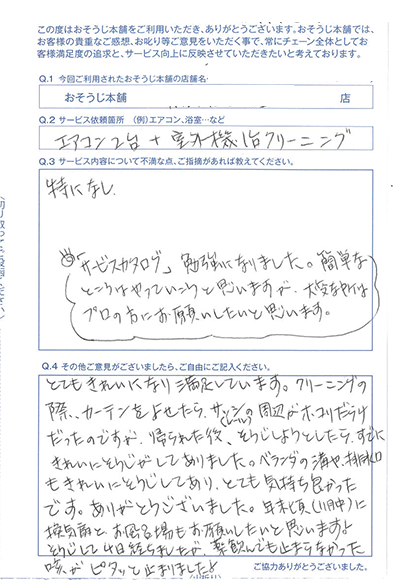 この度はおそうじ本舗をご利用いただき、ありがとうございます。おそうじ本舗では、
お客様の貴重なご感想、お叱り等ご意見をいただく事で、常にチェーン全体としてお
客様満足度の追求と、サービス向上に反映させていただきたいと考えております。
Q.1 今回ご利用されたおそうじ本舗の店舗名
おそうじ本舗 店
Q.2 サービス依頼箇所 (例)エアコン、浴室…など
エアコン2台 + 室外機1台クリーニング
Q.3 サービス内容について不満な点、ご指摘があれば教えてください。
特になし
「サービスカタログ」勉強になりました。簡単な
ところはやっていこうと思いますが、大変な所は
プロの方にお願いしたいと思います。
Q.4 その他ご意見がございましたら、ご自由にご記入ください。
とてもきれいになり満足しています。クリーニングの
際、カーテンをよせたら、サッシの周辺がホコリだらけ
だったのですが、帰られた後、そうじしようとしたら、すでに
きれいにそうじがしてありました。ベランダの溝や、排水口
もきれいにそうじしてあり、とても気持ち良かった
です。ありがとうございました。年末頃(11月中)に
換気扇と、お風呂場もお願いしたいと思いますよ
そうじして4日経ちましたが、薬飲んでも止まらなかった
咳がピタッと止まりました
ご協力ありがとうございました。